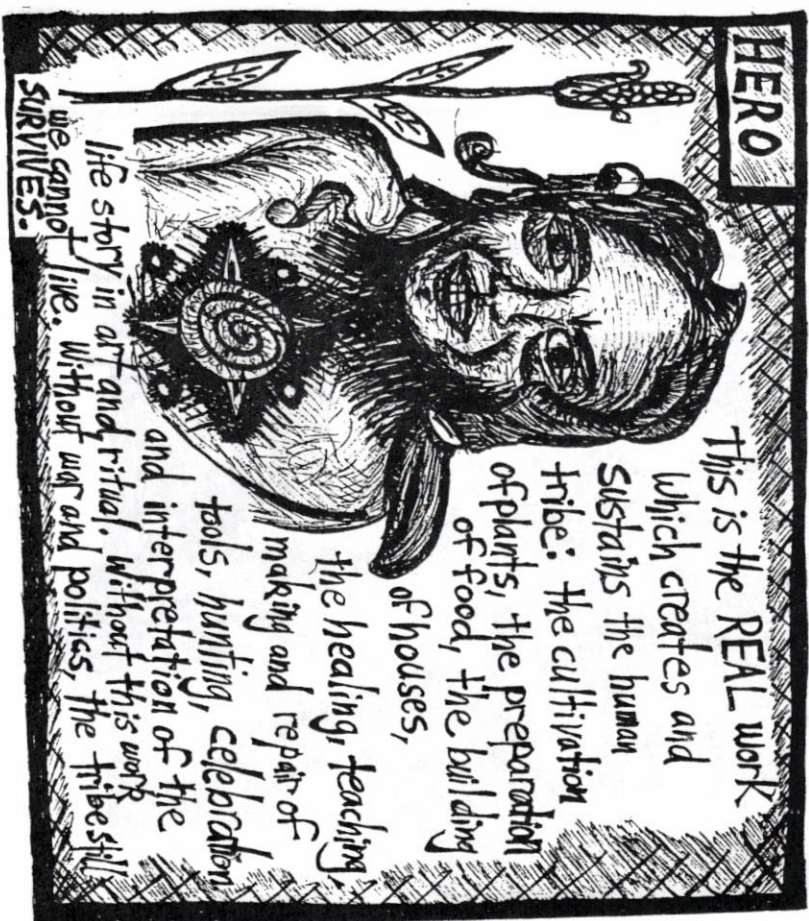 HERO
This is the REAL work
which creates and
sustains the human
tribe: the cultivation
of plants, the preparation
of food, the building
of houses,
the healing, teaching,
making and repair of
tools, hunting, celebration
and interpretation of the
life story in art and ritual. Without this work
we cannot live. Without war and politics, the tribe still
SURVIVES.